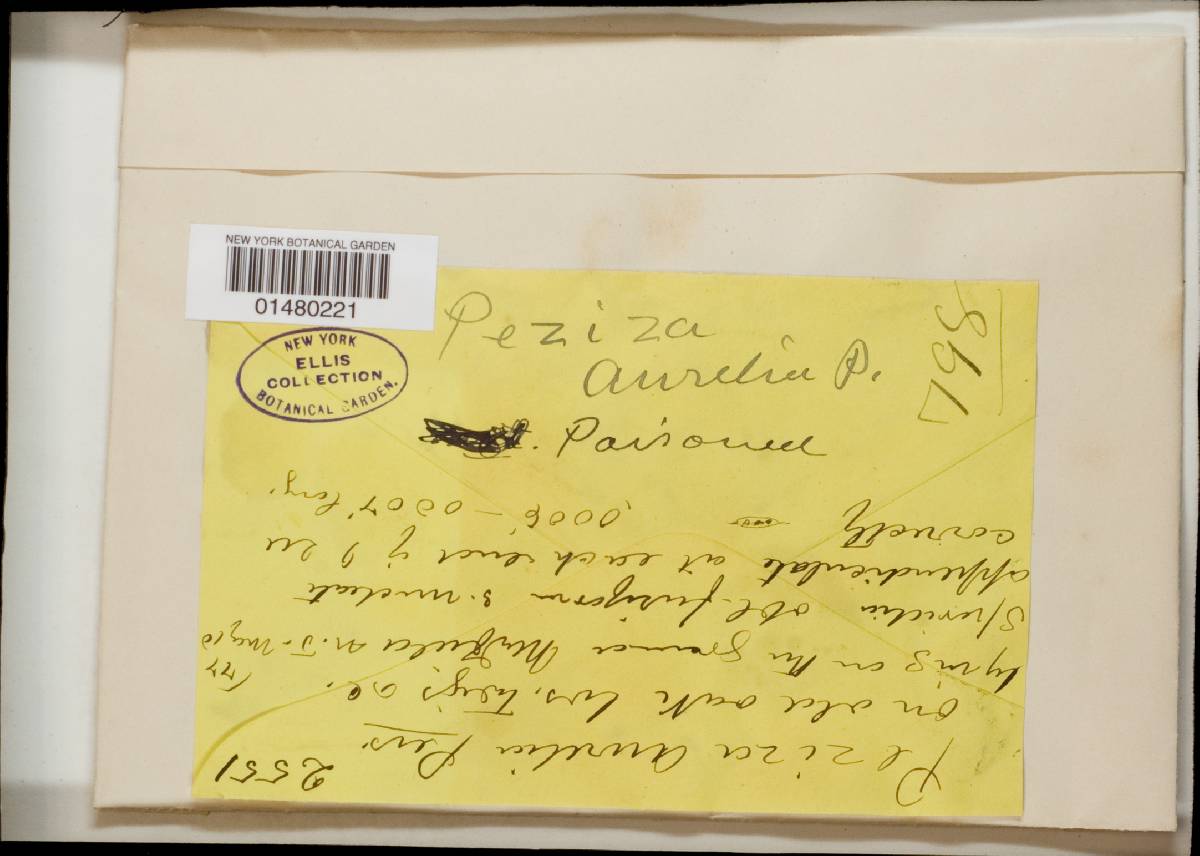 NEW YORK BOTANICAL GARDEN
01480221
NEW YORK
ELLIS
COLLECTION
BOTANICAL GARDEN.
Peziza
Aurelia P.
798
Poisoned
2551
Peziza Aurelia Pers.
On old oak lvs. twigs &c.
lying on the ground Newfield N.J. May
Sporidia obl-fusiform 3-nucleate
appendiculate at each end
,0006 - 0007' long.